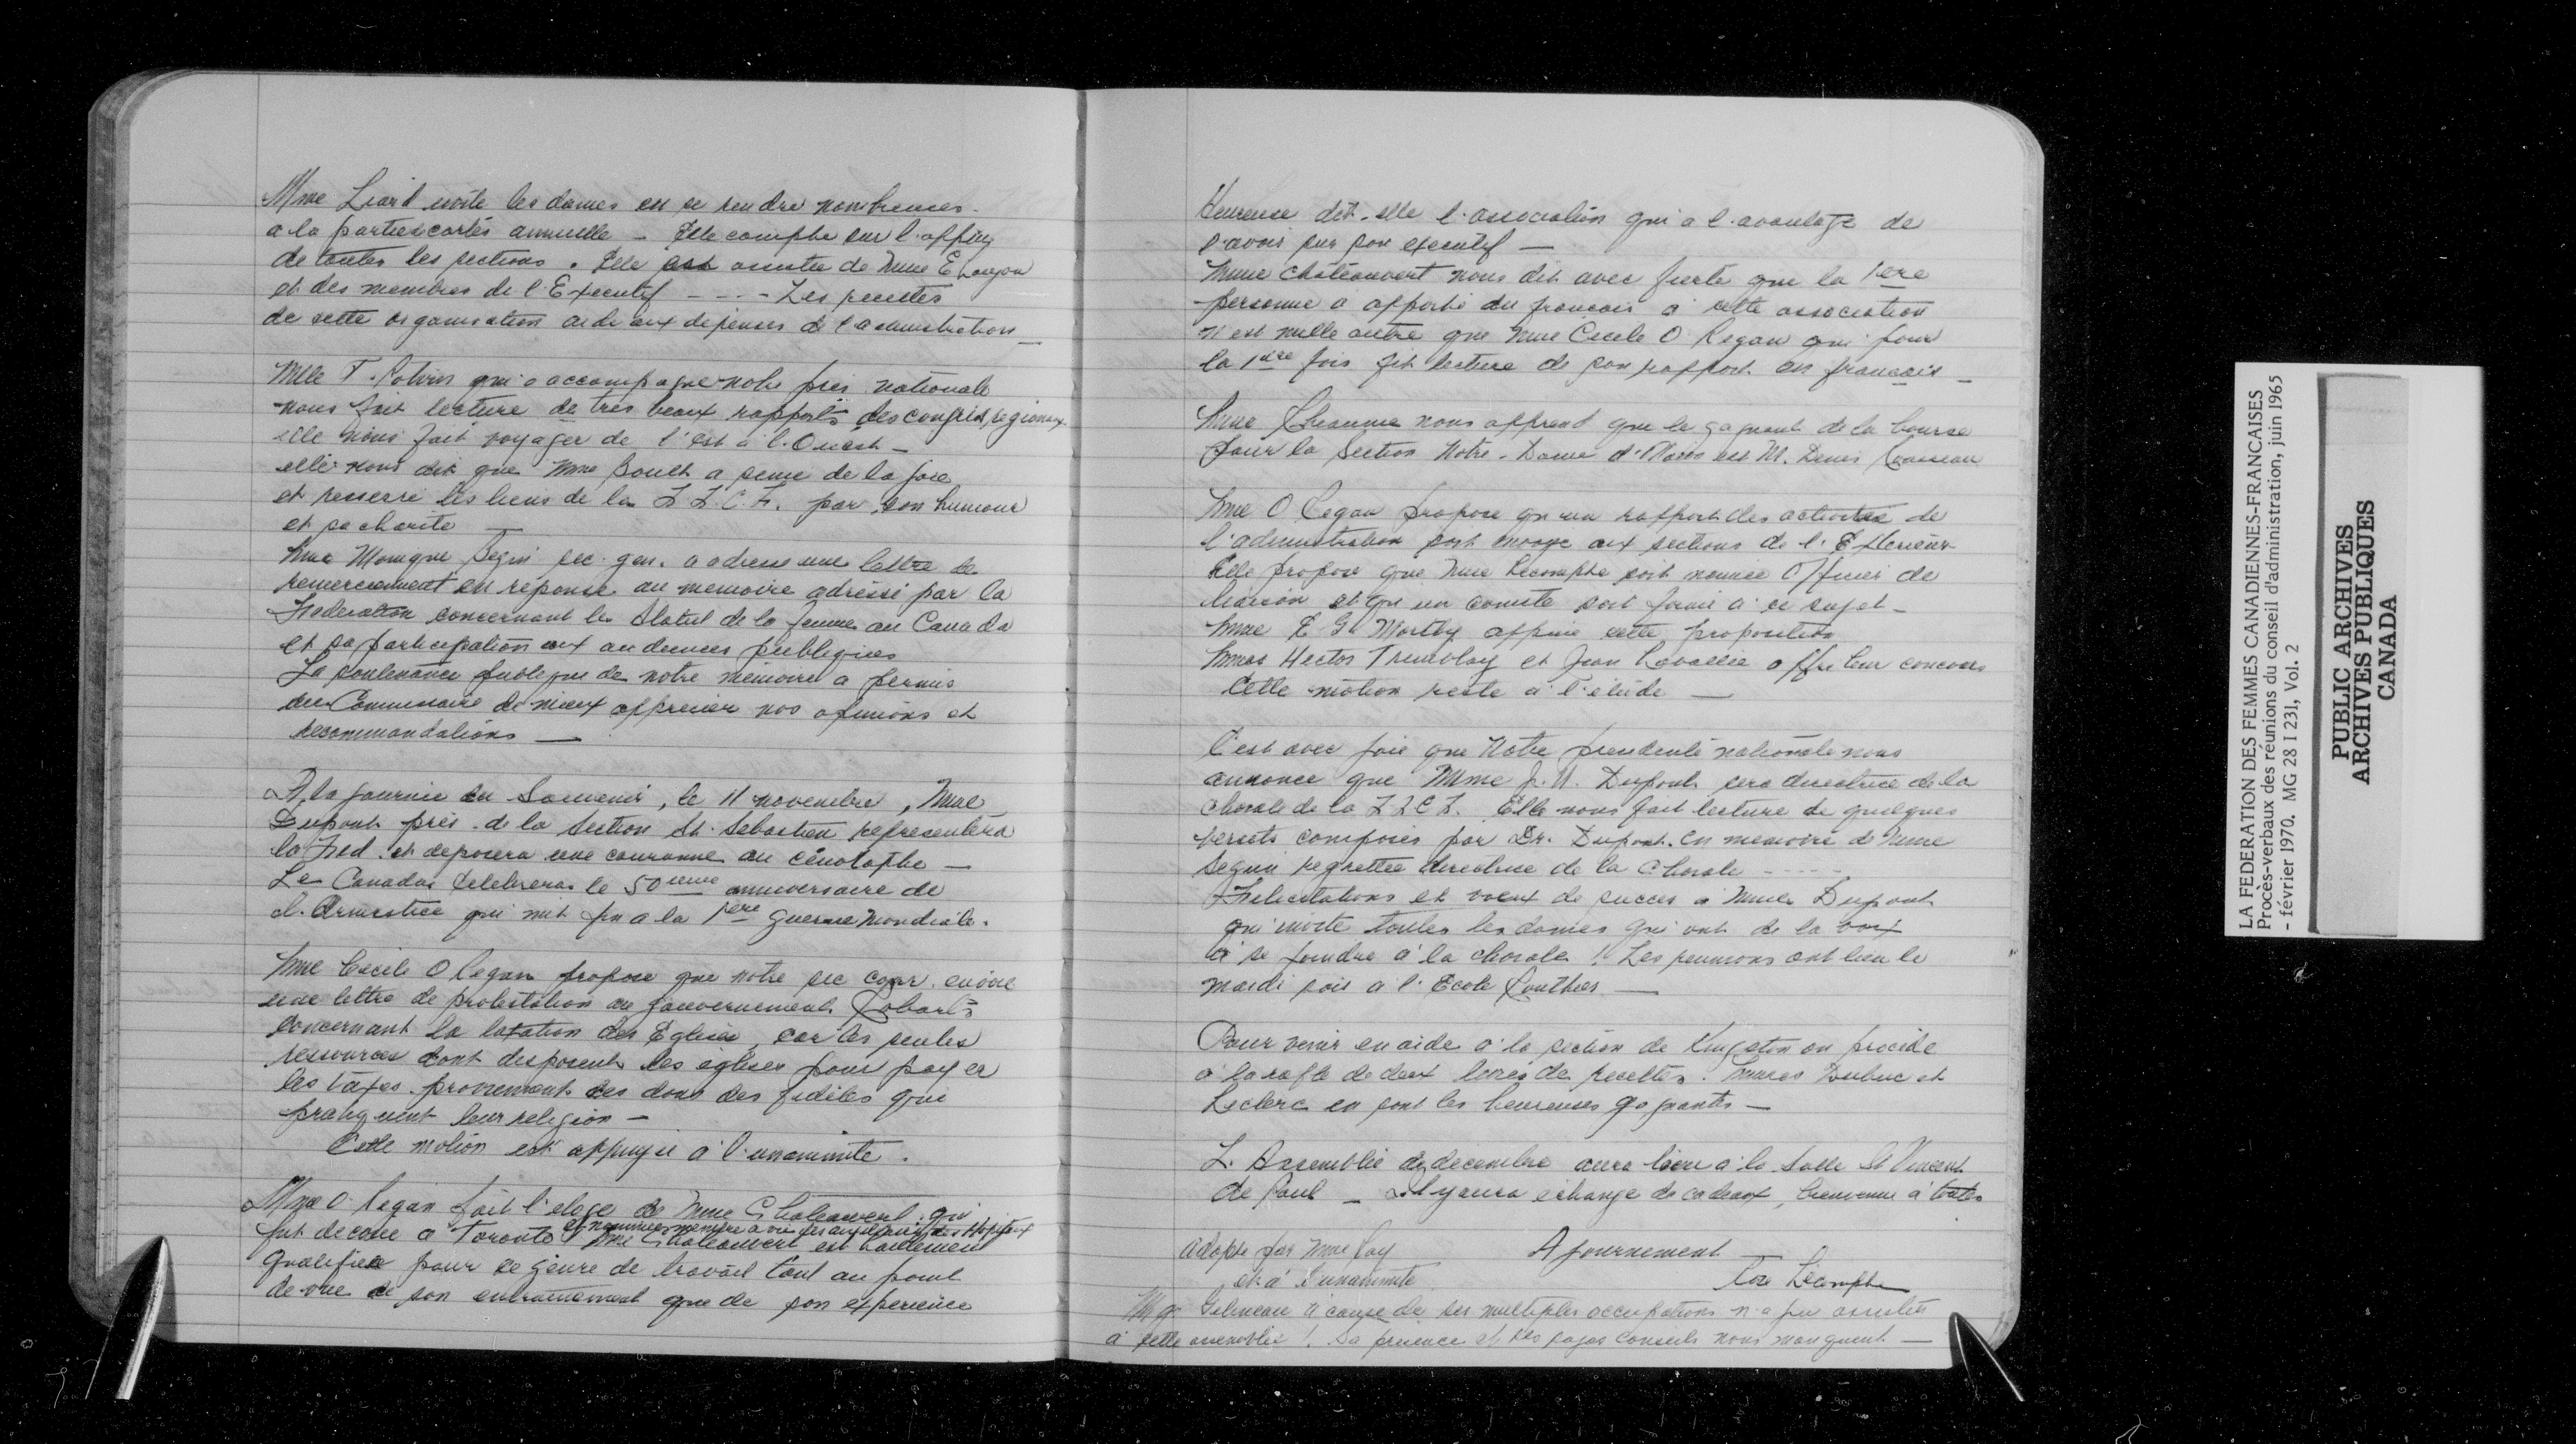 Mme Liard invite les dames en se rendre nombreuses
a la partie cartes annuelle – Elle compte sur l'appuy
de toutes les sections. Elle est assistee de Mme E
et des membres de l'Executif – – – – Les recettes
de cette organisation aide aux depenses de l'administration –
Mlle T. Potvin qui a accompagne notre pres nationale
nous fait lecture de tres beaux rapports des congres regionaux
elle nous fait voyager de l'est à l'Ouest –
elle nous dit que Mme Boult a seme de la joie
et resserre les liens de la F.F.C.F. par son humour
et sa charite –
Mme Monique Begin sec. gen. a adresse une lettre de
remerciement en réponse au memoire adressé par la
Federation concernant le Statut de la femme au Canada
et sa participation aux audiences publiques
La soutenance publique de notre memoire a permis
au Commissaire de mieux apprecier nos opinions et
recommandations –
A la journée du Souvenir, le 11 novembre, Mme
Dupont prés. de la Section St. Sebastien representera
la Fed. et deposera une couronne au cénotaphe –
Le Canada celebrera le 50ieme anniversaire de
l'Armistice qui mit fin a la 1ere guerre Mondiale.
Mme Cécile O Regan propose que notre sec corr. envoie
une lettre de protestation au gouvernement Robarts
concernant la taxation des Eglises, car les seules
ressources dont disposent les églises pour payer
les taxes proviennent des dons des fidèles qui
pratiquent leur religion –
Cette motion est appuyée à l'unanimite.
Mme O. Regan fait l'eloge de Mme Chateauvert qui
et nommee membre a vie des auxiliaires des Hopitaux
fut decoree a Toronto. Mme Chateauvert est hautement
qualifiee pour ce genre de travail tant au point
de vue de son entrainement que de son experience
Heureuse dit-elle l'association qui a l'avantage de
l'avoir sur son executif –
Mme Chateauvert nous dit avec fierte que la 1ere
personne a apporté du francais a cette association
n'est nulle autre que Mme Cecile O Regan qui pour
la 1ere fois fit lecture de son rapport en francais –
Mme Rheaume nous apprend que le gagnant de la bourse
pour la Section Notre-Dame est M. Denis Rousseau
Mme O Regan propose qu'un rapport des activites de
l'administration soit envoye aux sections de l'Exterieur
Elle propose que Mme Lecompte soit nommée Officier de
liaison et qu'un comite soit formé à ce sujet –
Mme E G Mortby appuie cette proposition
Mmes Hector Tremblay et Jean Lavallée offre leur concours
Cette motion reste à l'étude –
C'est avec joie que Notre presidente nationale nous
annonce que Mme J. N. Dupont sera directrice de la
chorale de la F F C F. Elle nous fait lecture de quelques
versets composés par Dr. Dupont en memoire de Mme
Seguin regrettée directrice de la Chorale – – – –
Felicitations et voeux de succes a Mme Dupont
qui invite toutes les dames qui ont de la voix
à se joindre à la chorale! Les reunions ont lieu le
mardi soir a l'Ecole Routhier –
Pour venir en aide à la section de Kingston on procède
a la rafle de deux livres de recettes. Mmes Dubuc et
Leclerc en sont les heureuses gagnantes –
L'Assemblée de decembre aura lieu à la Salle St Vincent
de Paul – Il y aura echange de cadeaux, bienvenue à toutes
Adopte par Mme Roy
Ajournement –
et a l'unanimite
Lecompte
Mgr Gelineau à cause de ses multiples occupations n'a pu assister
a cette assemblee! Sa presence et ses sages conseils nous manquent –
LA FEDERATION DES FEMMES CANADIENNES-FRANCAISES
Procès-verbaux des réunions du conseil d'administration, juin 1965
- février 1970. MG 28 I 231, Vol. 2
PUBLIC ARCHIVES
ARCHIVES PUBLIQUES
CANADA